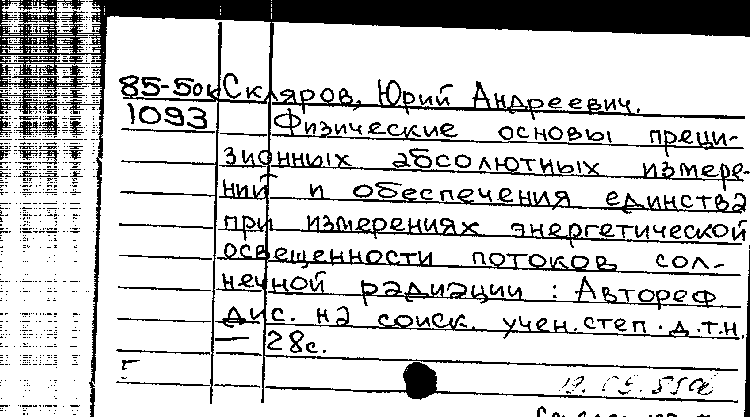 85-5ок Скляров, Юрий Андреевич.
1093 Физические основы преци-
зионных абсолютных измере-
ний и обеспечения единства
при измерениях энергетической
освещенности потоков сол-
нечной радиации : Автореф
дис. на соиск. учен. степ. д.т.н.
— 28с.